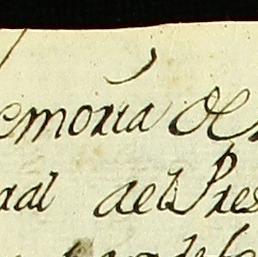 emoria de
ral del Pres